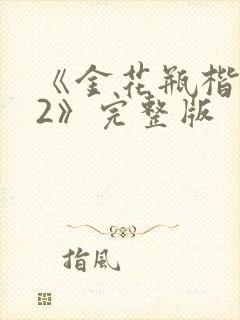 《金花瓶楷
2》完整版
指風